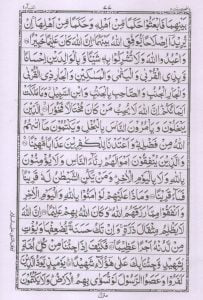 بَيْنِهِمَا فَابْعَثُوْا حَكَمًا مِّنْ اَهْلِهٖ وَحَكَمًا مِّنْ اَهْلِهَا ۚ اِنْ
يُّرِيْدَاۤ اِصْلَاحًا يُّوَفِّقِ اللّٰهُ بَيْنَهُمَا ؕ اِنَّ اللّٰهَ كَانَ عَلِيْمًا خَبِيْرًا
وَاعْبُدُوا اللّٰهَ وَلَا تُشْرِكُوْا بِهٖ شَيْـًٔا وَّبِالْوَالِدَيْنِ اِحْسَانًا
وَّبِذِى الْقُرْبٰى وَالْيَتٰمٰى وَالْمَسٰكِيْنِ وَالْجَارِ ذِى الْقُرْبٰى
وَالْجَارِ الْجُنُبِ وَالصَّاحِبِ بِالْجَنْۢبِ وَابْنِ السَّبِيْلِ ۙ وَمَا مَلَكَتْ
اَيْمَانُكُمْ ؕ اِنَّ اللّٰهَ لَا يُحِبُّ مَنْ كَانَ مُخْتَالًا فَخُوْرًا الَّذِيْنَ
يَبْخَلُوْنَ وَيَاْمُرُوْنَ النَّاسَ بِالْبُخْلِ وَيَكْتُمُوْنَ مَاۤ اٰتٰىهُمُ
اللّٰهُ مِنْ فَضْلِهٖ ؕ وَاَعْتَدْنَا لِلْكٰفِرِيْنَ عَذَابًا مُّهِيْنًا
وَالَّذِيْنَ يُنْفِقُوْنَ اَمْوَالَهُمْ رِئَآءَ النَّاسِ وَلَا يُؤْمِنُوْنَ
بِاللّٰهِ وَلَا بِالْيَوْمِ الْاٰخِرِ ؕ وَمَنْ يَّكُنِ الشَّيْطٰنُ لَهٗ قَرِيْنًا
فَسَآءَ قَرِيْنًا وَمَاذَا عَلَيْهِمْ لَوْ اٰمَنُوْا بِاللّٰهِ وَالْيَوْمِ الْاٰخِرِ
وَاَنْفَقُوْا مِمَّا رَزَقَهُمُ اللّٰهُ ؕ وَكَانَ اللّٰهُ بِهِمْ عَلِيْمًا اِنَّ اللّٰهَ لَا
يَظْلِمُ مِثْقَالَ ذَرَّةٍ ۚ وَاِنْ تَكُ حَسَنَةً يُّضٰعِفْهَا وَيُؤْتِ
مِنْ لَّدُنْهُ اَجْرًا عَظِيْمًا فَكَيْفَ اِذَا جِئْنَا مِنْ كُلِّ اُمَّةٍۭ
بِشَهِيْدٍ وَّجِئْنَا بِكَ عَلٰى هٰٓؤُلَآءِ شَهِيْدًا يَوْمَئِذٍ يَّوَدُّ الَّذِيْنَ
كَفَرُوْا وَعَصَوُا الرَّسُوْلَ لَوْ تُسَوّٰى بِهِمُ الْاَرْضُ ؕ وَلَا يَكْتُمُوْنَ